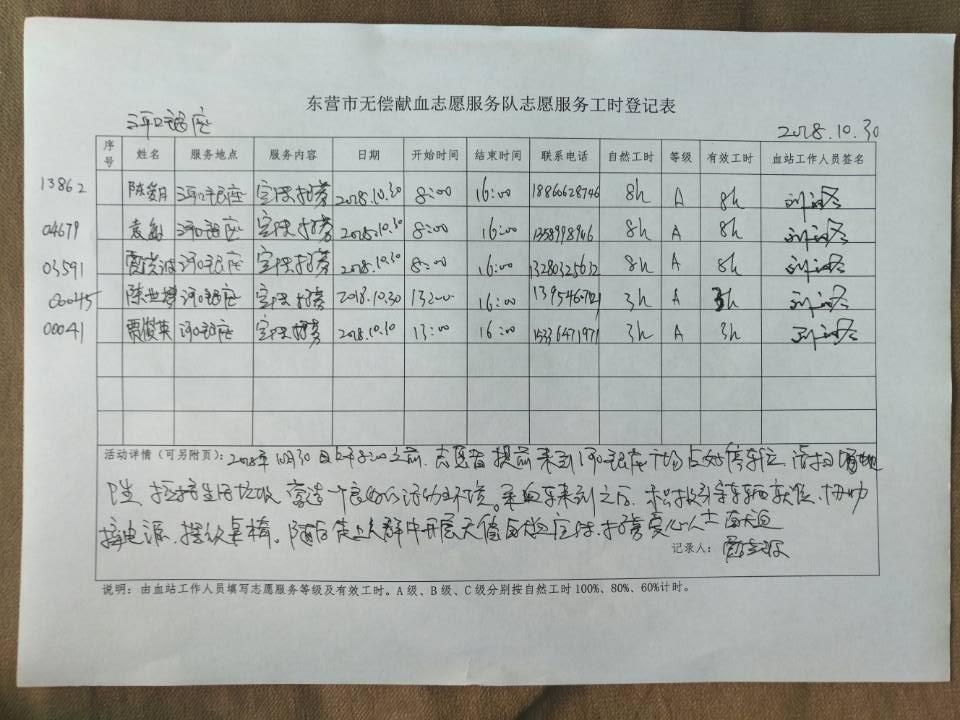 东营市无偿献血志愿服务队志愿服务工时登记表
河口银座
2018.10.30
序号 姓名 服务地点 服务内容 日期 开始时间 结束时间 联系电话 自然工时 等级 有效工时 血站工作人员签名
13862 河口银座 宣传招募 2018.10.30 8:00 16:00 18866628746 8h A 8h
04679 袁 河口银座 宣传招募 2018.10.30 8:00 16:00 8h A 8h
03591 河口银座 宣传招募 2018.10.30 8:00 16:00 13280325632 8h A 8h
00045 河口银座 宣传招募 2018.10.30 13:00 16:00 3h A 3h
00041 贾俊英 河口银座 宣传招募 2018.10.30 13:00 16:00 15336471971 3h A 3h
活动详情（可另附页）：2018年10月30日上午8:00之前，志愿者提前来到河口银座广场占好停车位，清扫
卫生，捡拾生活垃圾，营造一个良好的活动环境。采血车来到之后，积极引导车辆就位，协助
接电源、摆放桌椅。随后走上人群中开展无偿献血宣传，招募爱心人士献血
记录人：
说明：由血站工作人员填写志愿服务等级及有效工时。A级、B级、C级分别按自然工时100%、80%、60%计时。